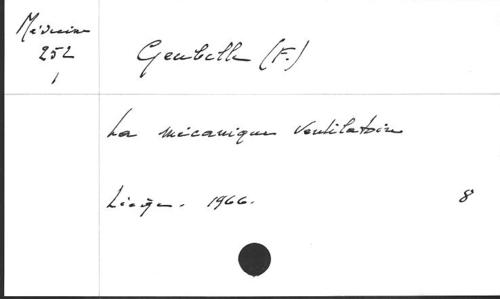 Médecine
252
1
Geubelle (F.)
La mécanique ventilatoire
Liège. 1966. 8